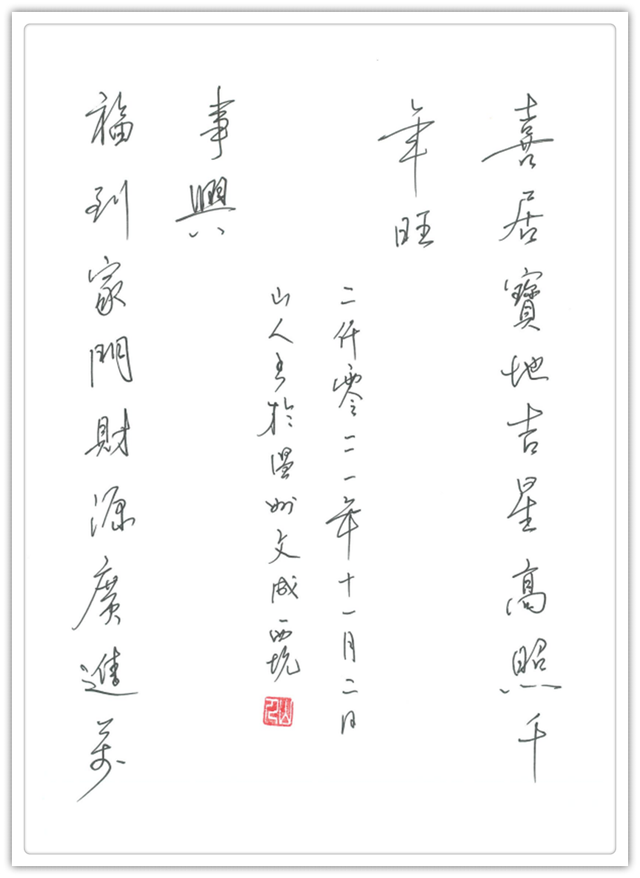 喜居寶地吉星高照千
年旺
福到家門財源廣進萬
事興
二仟零二一年十一月二日
山人書於溫州文成西坑
山人